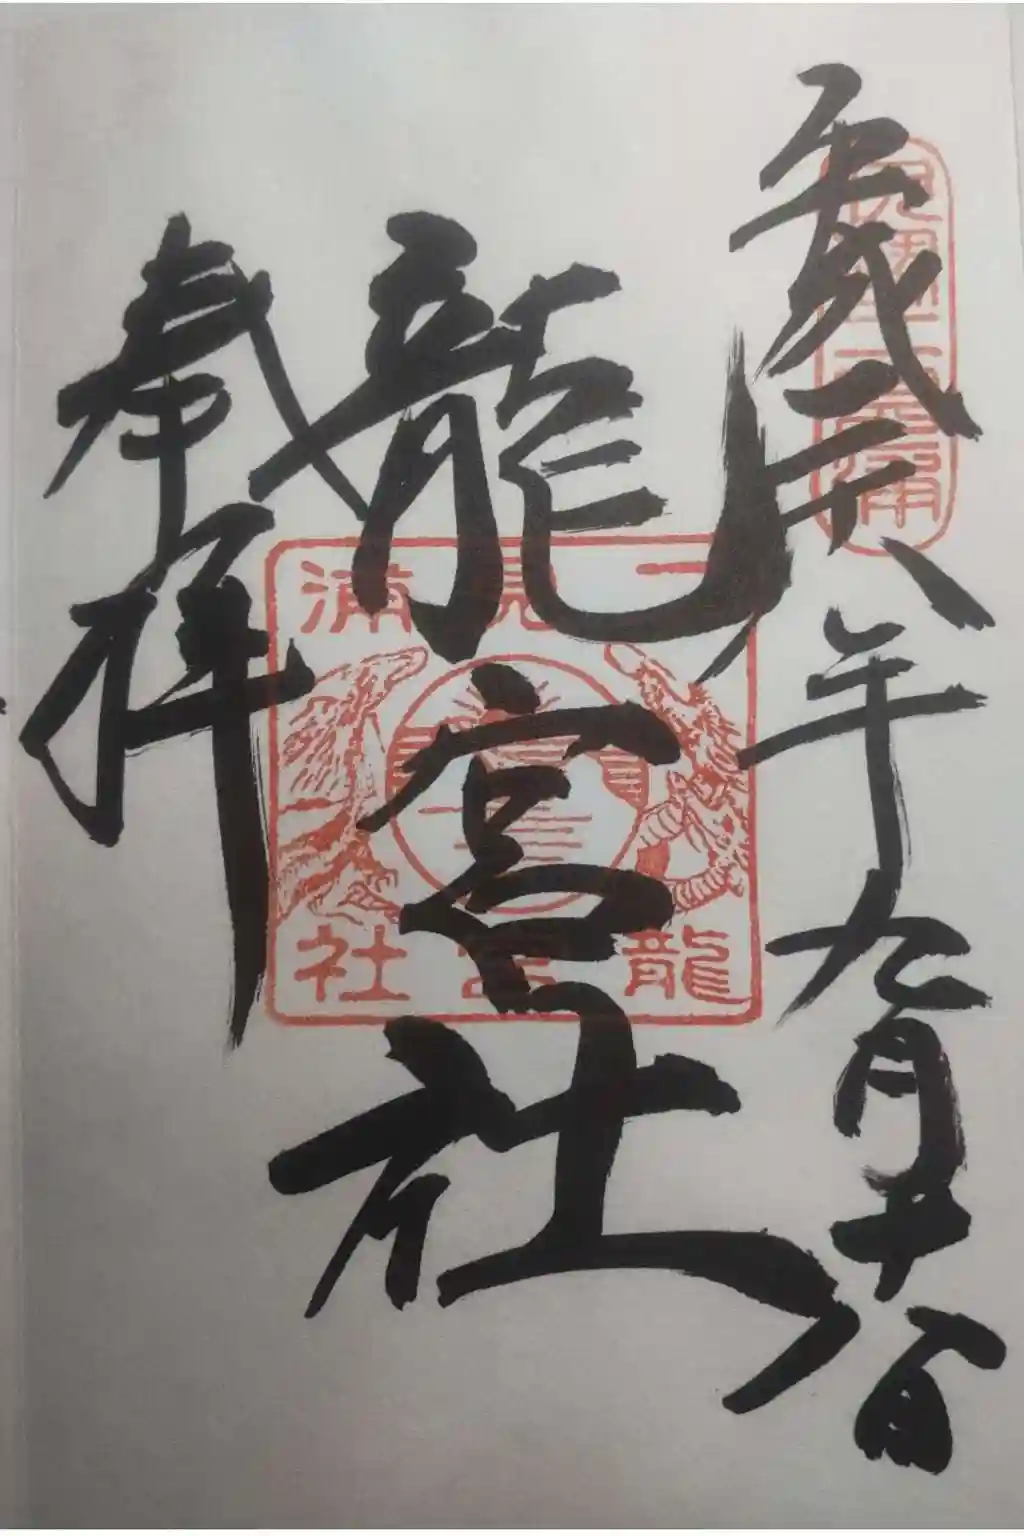 平成二十八年九月十日
龍宮社
奉拝
二見浦
龍宮社